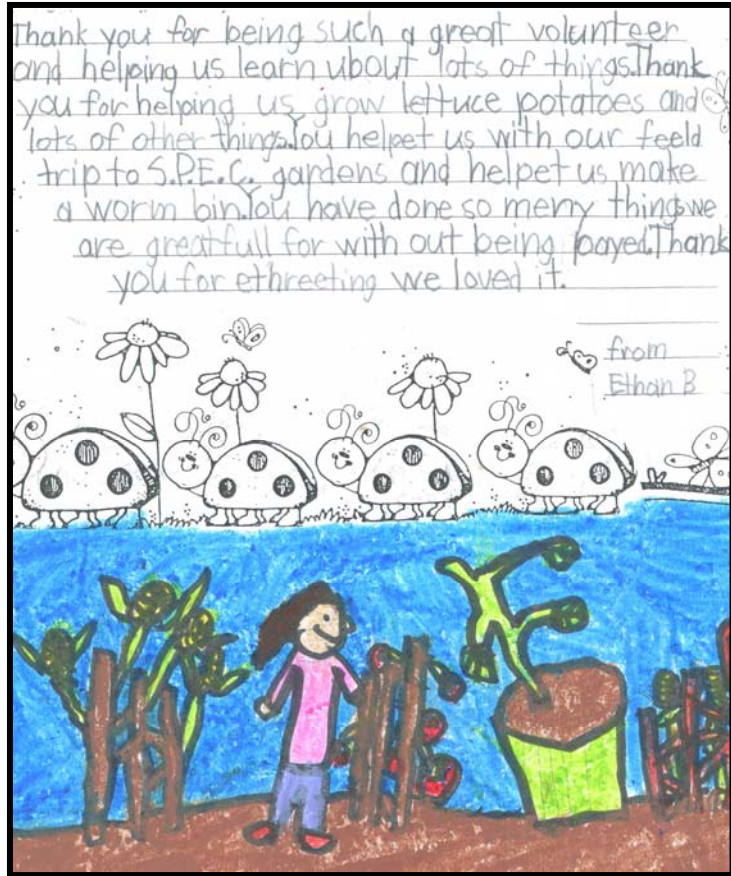 Thank you for being such a great volunteer
and helping us learn ubout lots of things.Thank
you for helping us grow lettuce potatoes and
lots of other things.You helpet us with our feeld
trip to S.P.E.C. gardens and helpet us make
a worm bin.You have done so meny things we
are greatfull for with out being payed.Thank
you for ethreeting we loved it.
from
Ethan B